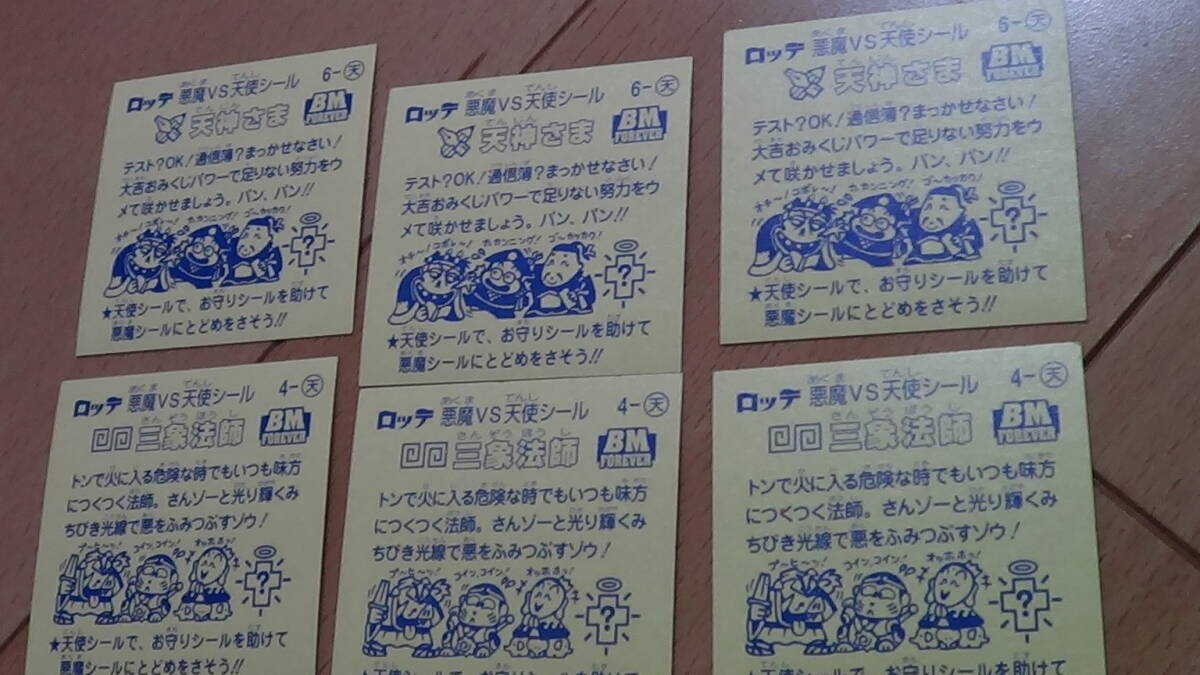 6-天
ロッテ 悪魔VS天使シール
天神さま
BM
FOREVER
テスト?OK!通信簿?まっかせなさい!
大吉おみくじパワーで足りない努力をウ
メて咲かせましょう。バン、バン!!
オチ〜!コボレ〜!
カ、カンニング!
ゴーカッカク!
?
★天使シールで、お守りシールを助けて
悪魔シールにとどめをさそう!!
6-天
ロッテ 悪魔VS天使シール
天神さま
BM
FOREVER
テスト?OK!通信簿?まっかせなさい!
大吉おみくじパワーで足りない努力をウ
メて咲かせましょう。バン、バン!!
オチ〜!コボレ〜!
カ、カンニング!
ゴーカッカク!
?
★天使シールで、お守りシールを助けて
悪魔シールにとどめをさそう!!
6-天
ロッテ 悪魔VS天使シール
天神さま
BM
FOREVER
テスト?OK!通信簿?まっかせなさい!
大吉おみくじパワーで足りない努力をウ
メて咲かせましょう。バン、バン!!
オチ〜!コボレ〜!
カ、カンニング!
ゴーカッカク!
?
★天使シールで、お守りシールを助けて
悪魔シールにとどめをさそう!!
4-天
ロッテ 悪魔VS天使シール
三象法師
BM
FOREVER
トンで火に入る危険な時でもいつも味方
につくつく法師。さんゾーと光り輝くみ
ちびき光線で悪をふみつぶすゾウ!
プーヒ〜ッ!
コイッ、コイン!
オッホホッ!
?
★天使シールで、お守りシールを助けて
悪魔シールにとどめをさそう!!
4-天
ロッテ 悪魔VS天使シール
三象法師
BM
FOREVER
トンで火に入る危険な時でもいつも味方
につくつく法師。さんゾーと光り輝くみ
ちびき光線で悪をふみつぶすゾウ!
プーヒ〜ッ!
コイッ、コイン!
オッホホッ!
?
★天使シールで、お守りシールを助けて
4-天
ロッテ 悪魔VS天使シール
三象法師
BM
FOREVER
トンで火に入る危険な時でもいつも味方
につくつく法師。さんゾーと光り輝くみ
ちびき光線で悪をふみつぶすゾウ!
プーヒ〜ッ!
コイッ、コイン!
オッホホッ!
?
★天使シールで、お守りシールを助けて